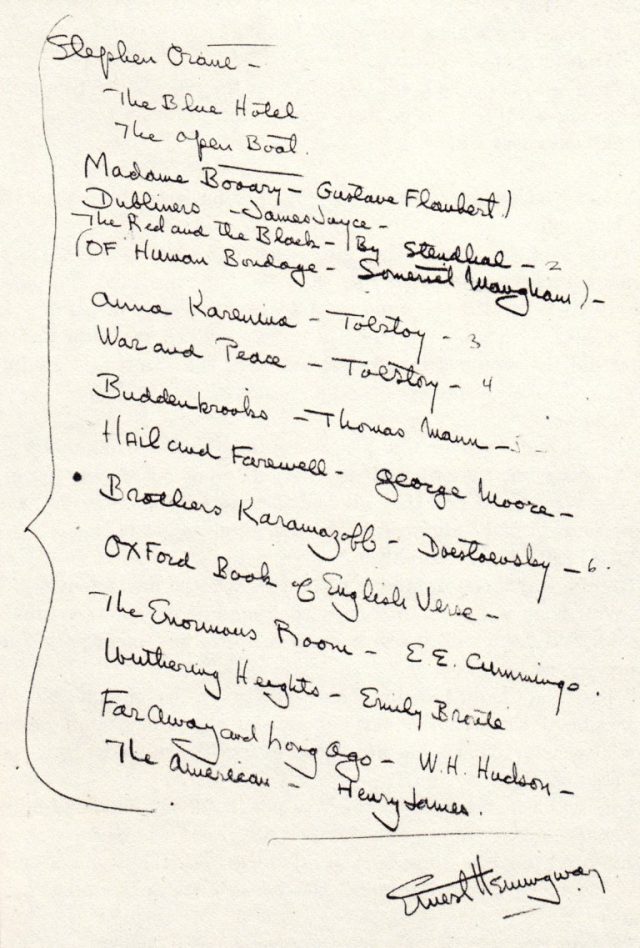 Stephen Crane –
The Blue Hotel
The Open Boat.
Madame Bovary – Gustave Flaubert)
Dubliners – James Joyce –
The Red and the Black – (By Stendhal – 2
(OF Human Bondage – Somerset Maugham) –
Anna Karenina – Tolstoy – 3
War and Peace – Tolstoy – 4
Buddenbrooks – Thomas Mann – 5 –
Hail and Farewell – George Moore –
Brothers Karamazoff – Doestoevsky – 6.
OXFord Book of English Verse –
The Enormous Room – E E. Cummings.
Wuthering Heights – Emily Bronte
Far Away and Long Ago – W.H. Hudson –
The American – Henry James.
Ernest Hemingway